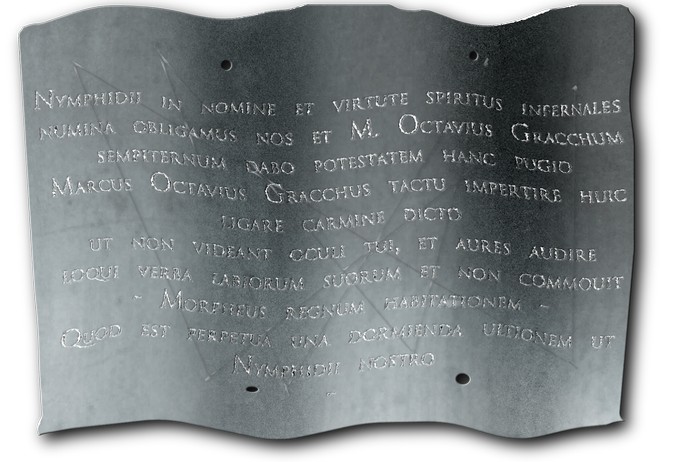 Nymphidii in nomine et virtute spiritus infernales
numina obligamus nos et M. Octavius Gracchum
sempiternum dabo potestatem hanc pugio
Marcus Octavius Gracchus tactu impertire huic
ligare carmine dicto
ut non videant oculi tui, et aures audire
loqui verba labiorum suorum et non commouit
- Morpheus regnum habitationem -
Quod est perpetua una dormienda ultionem ut
Nymphidii nostro